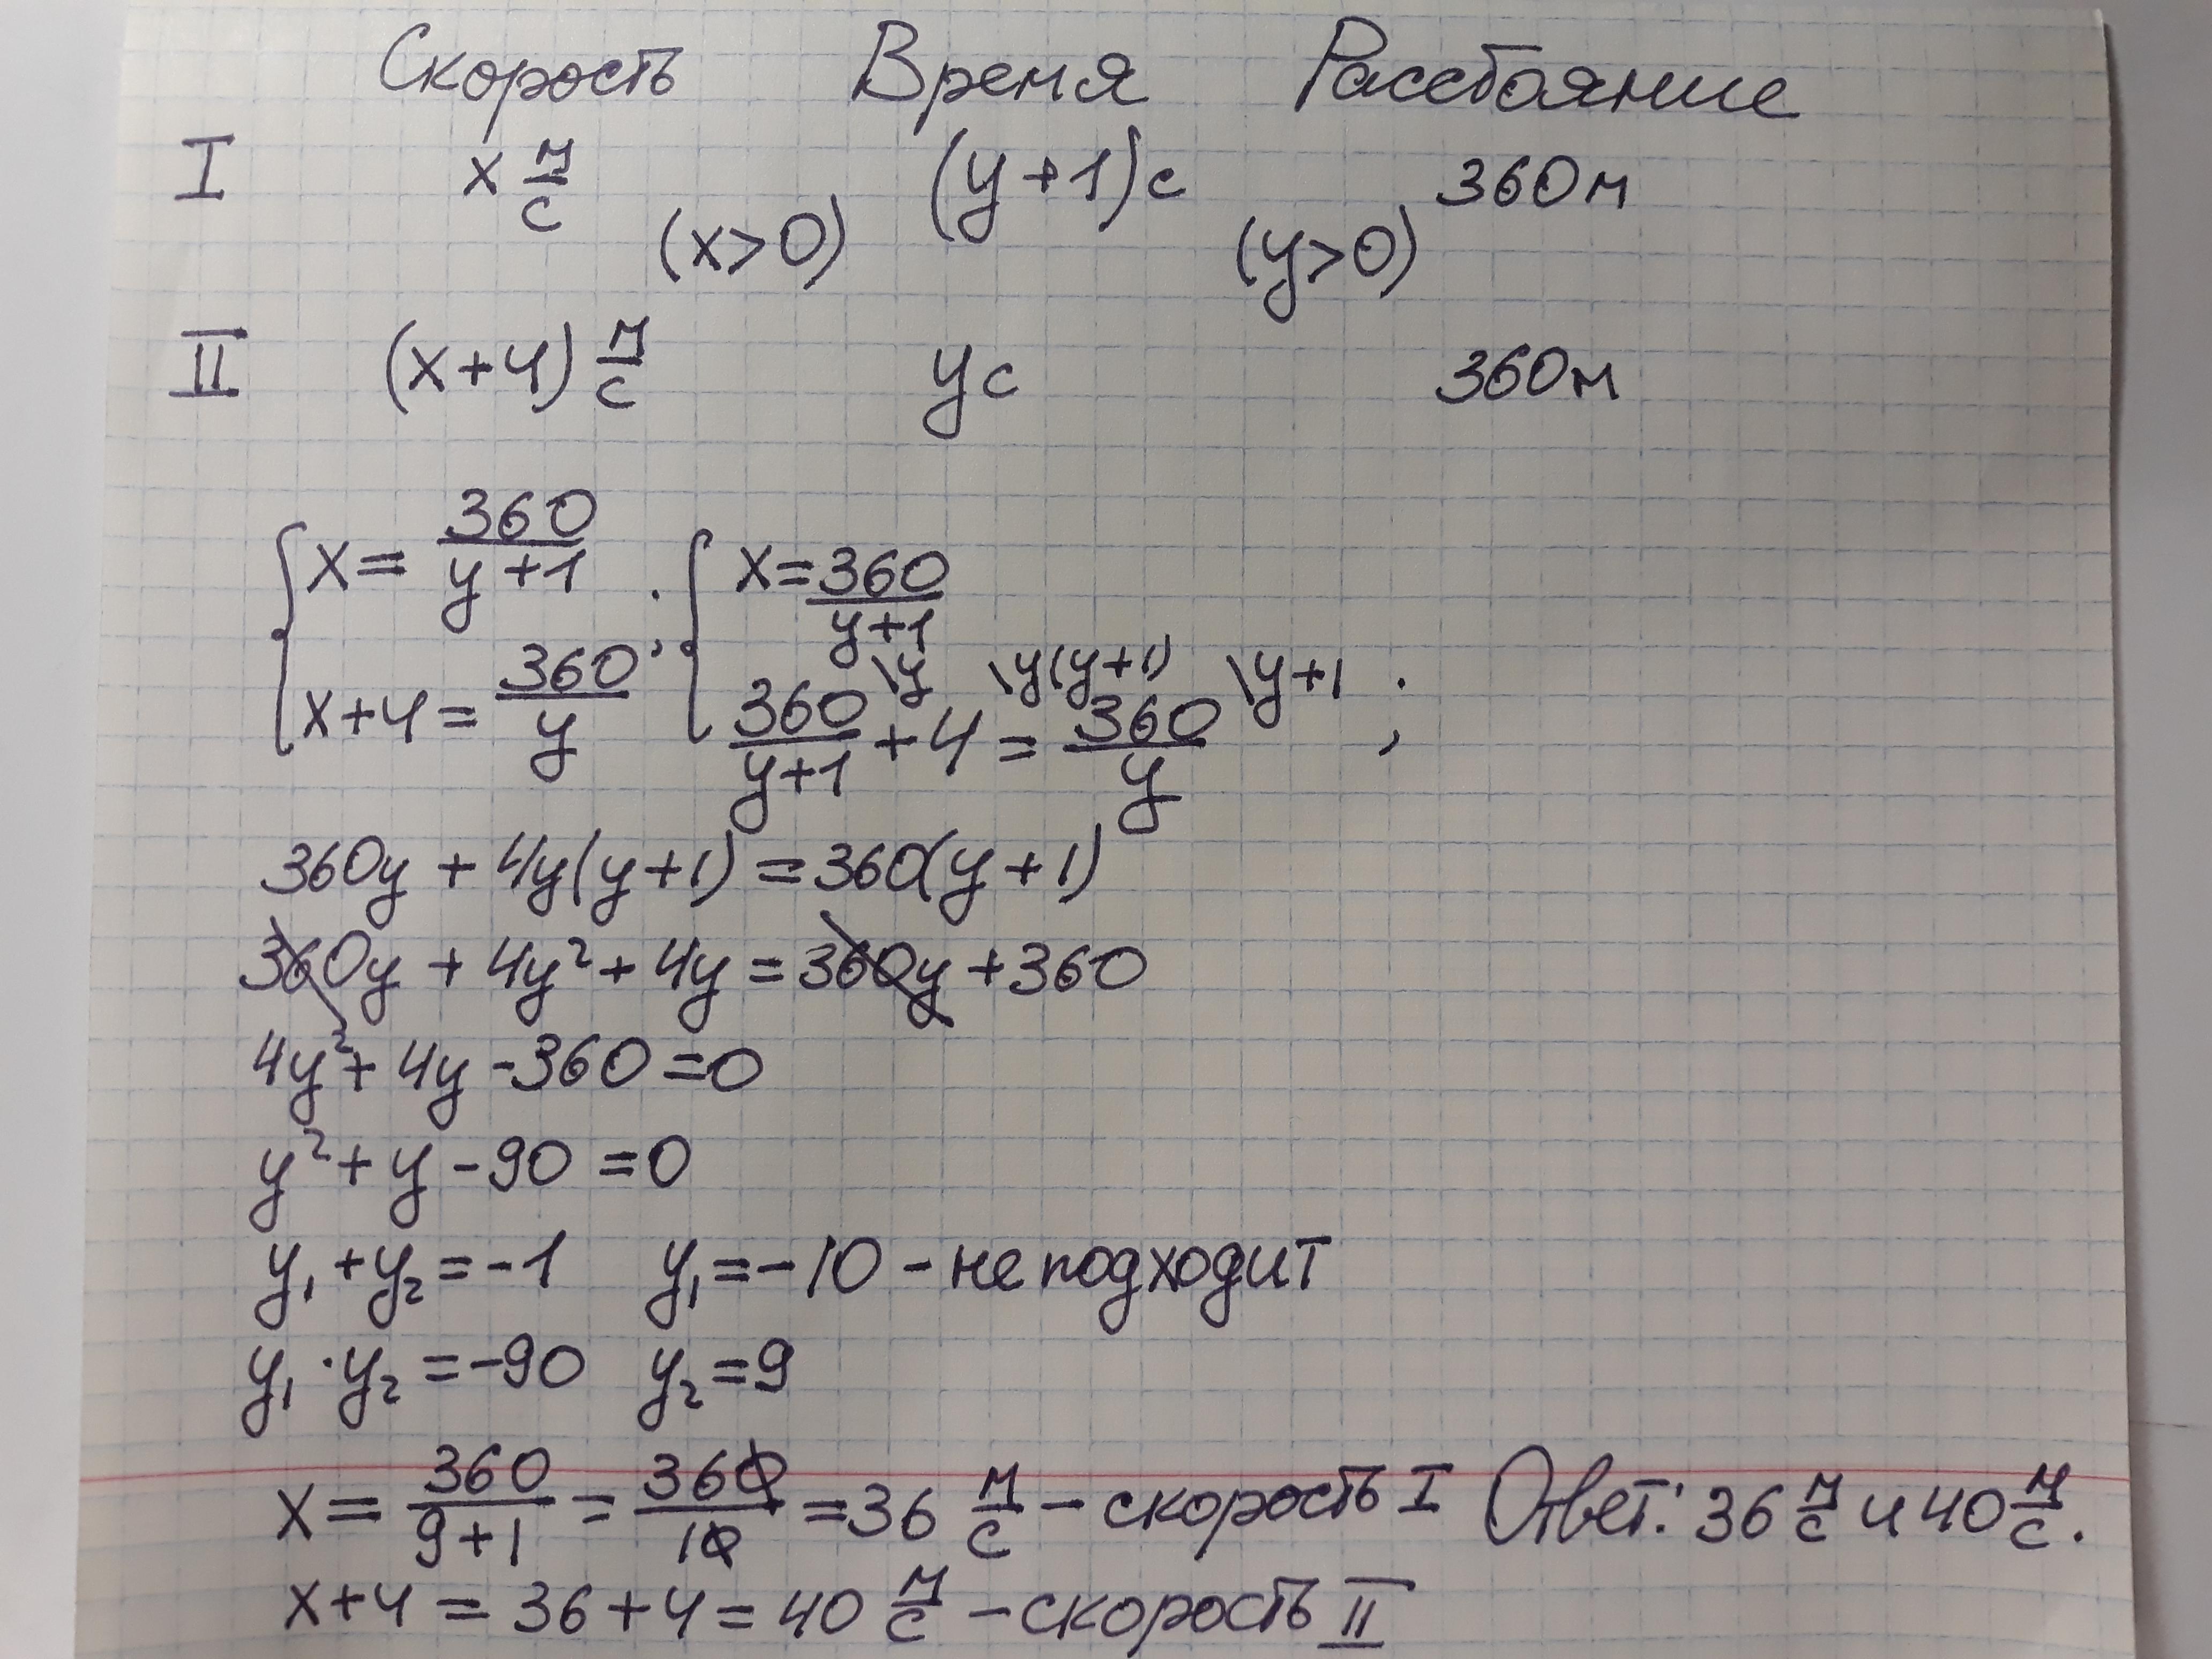 Скорость Время Расстояние
I x м/с (y+1)с 360м
(x>0) (y>0)
II (x+4) м/с yс 360м
{ x = 360/(y+1) ; { x = 360/(y+1)
x+4 = 360/y 360/(y+1) \y + 4 \y(y+1) = 360/y \y+1 ;
360y + 4y(y+1) = 360(y+1)
360y + 4y² + 4y = 360y + 360
4y² + 4y - 360 = 0
y² + y - 90 = 0
y₁ + y₂ = -1 y₁ = -10 - не подходит
y₁ · y₂ = -90 y₂ = 9
x = 360/(9+1) = 360/10 = 36 м/с - скорость I Ответ: 36 м/с и 40 м/с.
x+4 = 36+4 = 40 м/с - скорость II